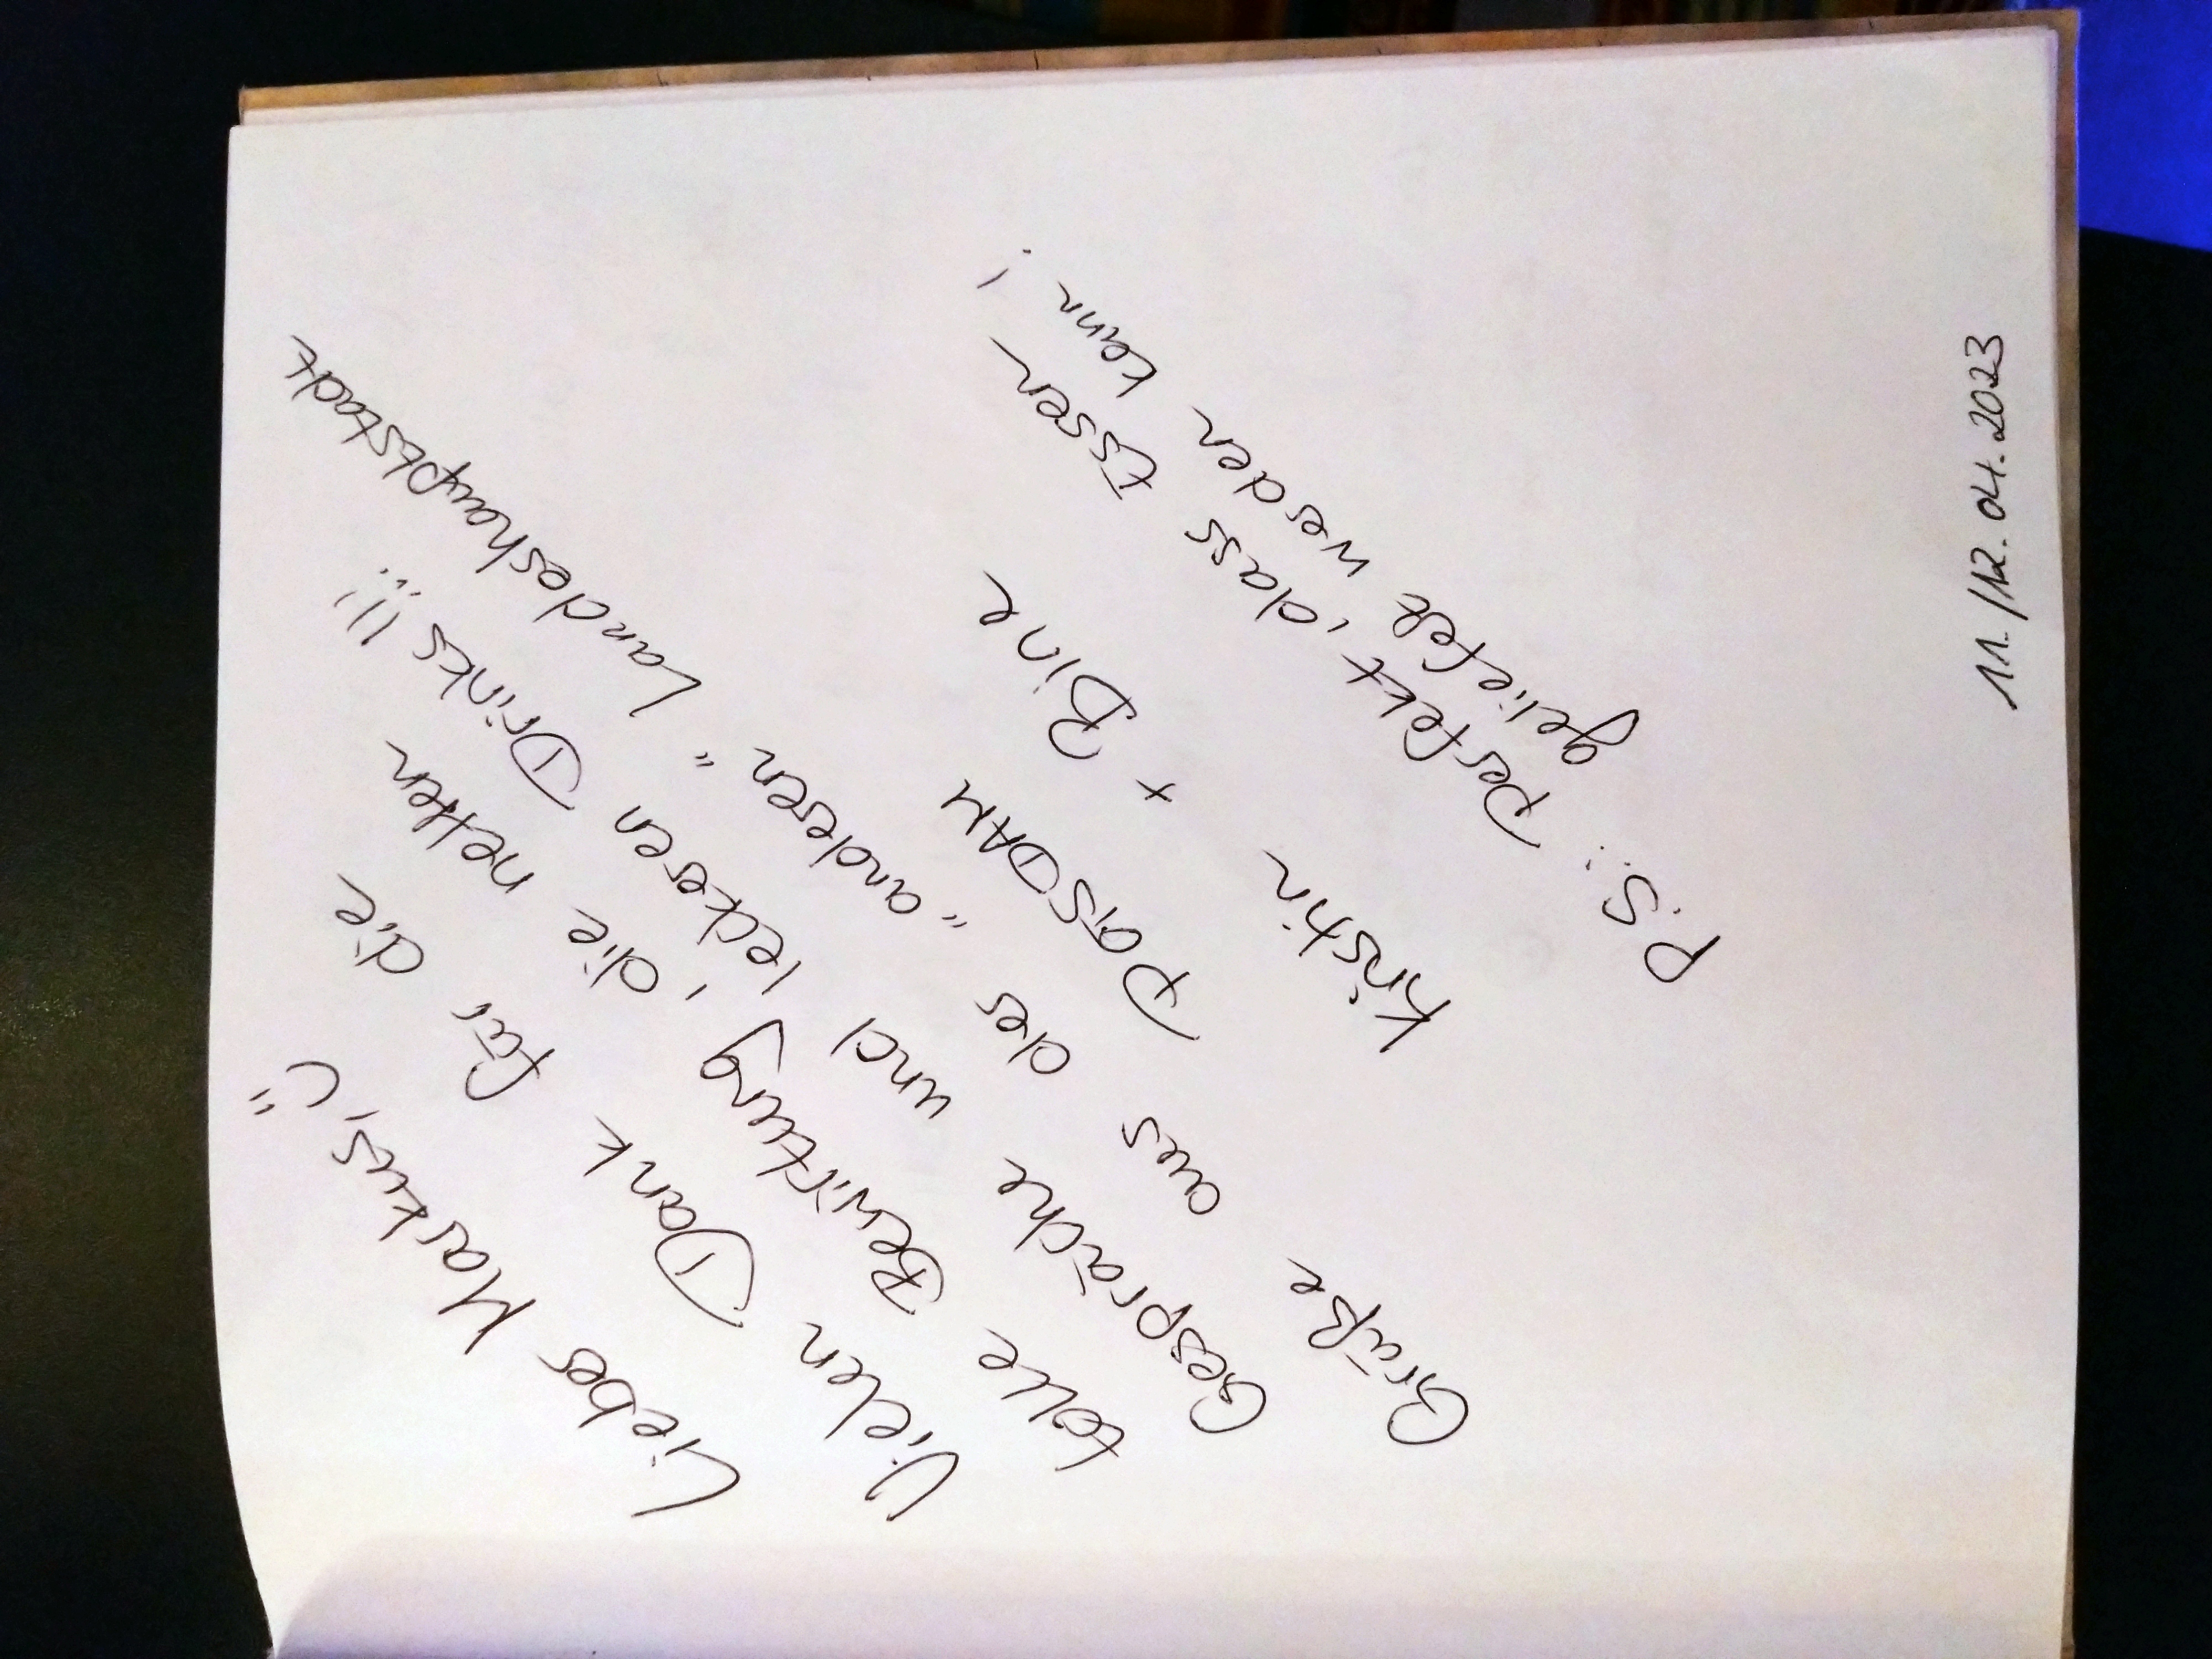 Lieber Markus, ü
Vielen Dank für die
tolle Bewirtung, die netten
Gespräche und leckeren Drinks!!!
Grüße aus der "anderen" Landeshauptstadt
POTSDAM
Kristin + Bine
P.S.: Perfekt, dass Essen
geliefert werden kann!
11./12.04.2023